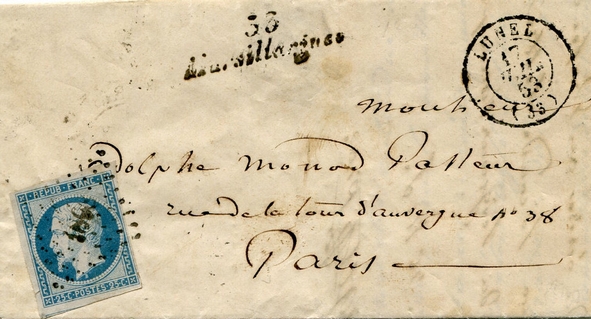 33
Marsillargues
LUNEL
17
JUIL
53
(33)
Monsieur
Adolphe Monod Pasteur
rue de la tour d'auvergne No 38
Paris
REPUB. FRANC.
25 C POSTES 25 C